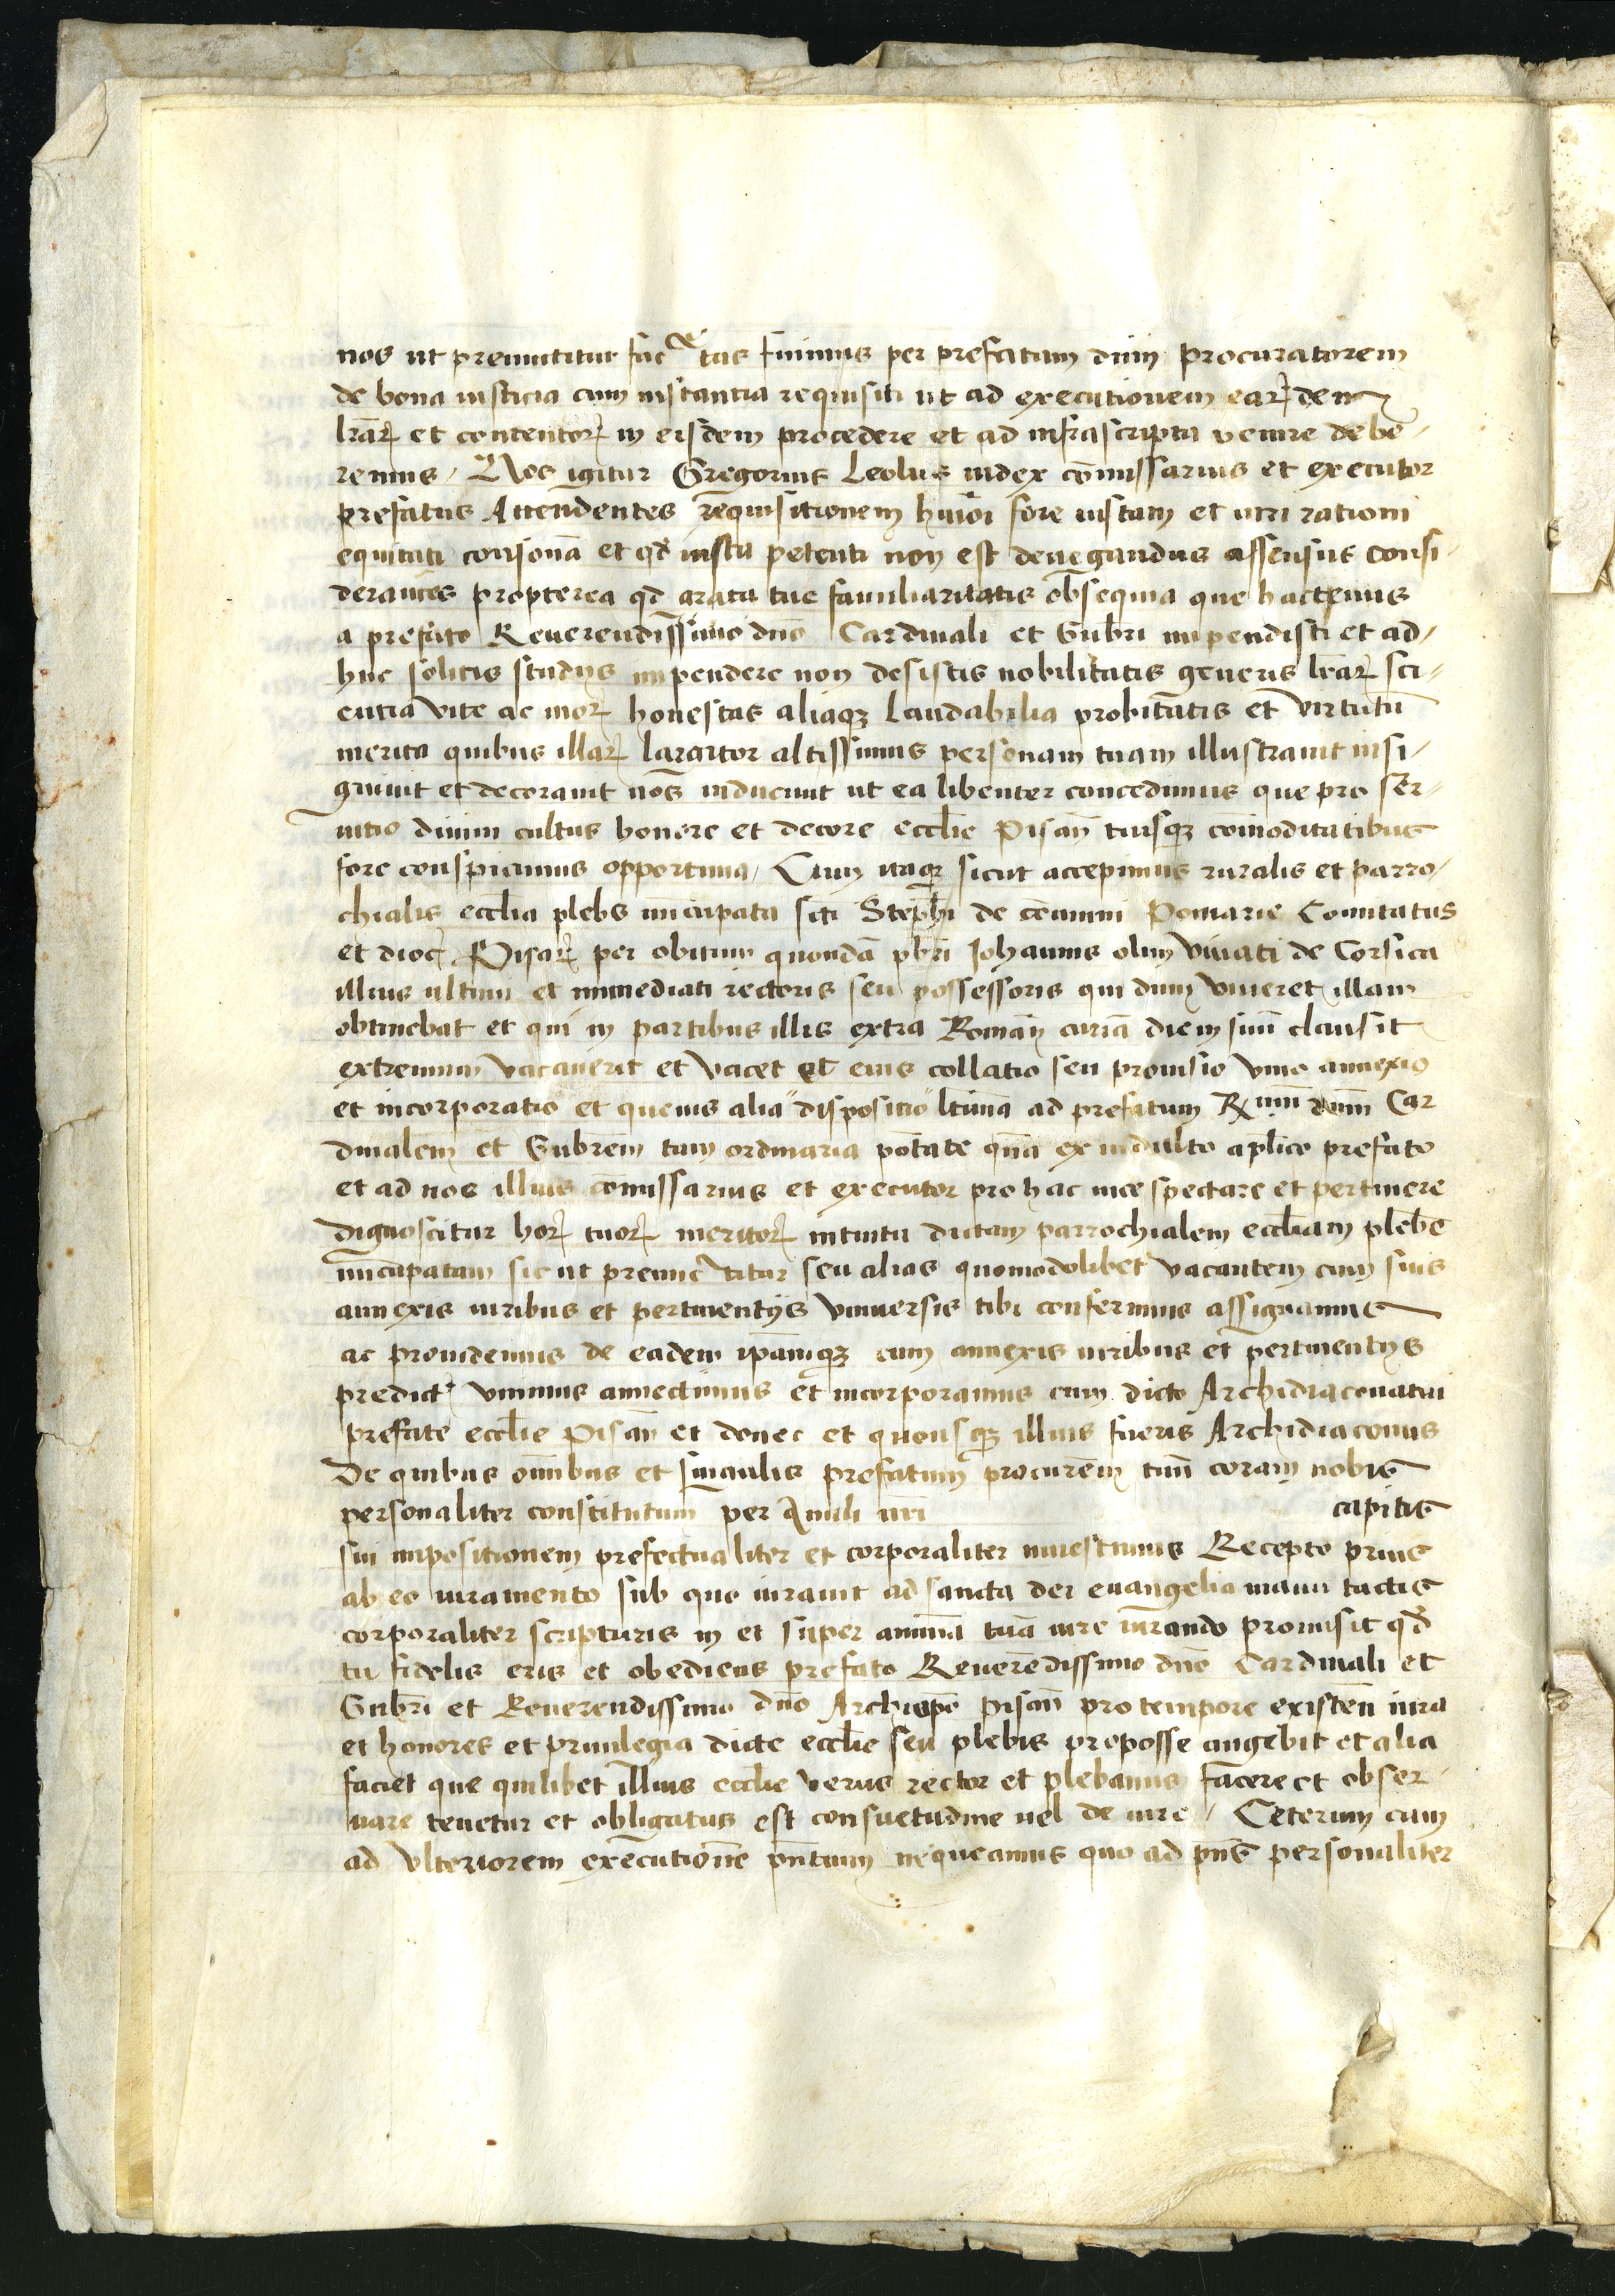 nos ut premittitur fac tas fuimus per prefatum dnm procuratorem
de bona iusticia cum instantia requisiti ut ad executionem earꝝdem
lrarꝝ et contentorꝝ in eisdem procedere et ad infrascripta venire debe,
remus, Nos igitur Gregorius Leolus iudex comissarius et executor
prefatus Attendentes requisitionem huiōi fore iustam et iuri rationi
equitati consonā et qd iusta petenti non est denegandus assensus consi,
derantes propterea qd grata tue familiaritatis obsequia que hactenus
a prefato Reuerendissimo dno Cardinali et Gubri impendisti et ad,
huc solicis studijs impendere non desistis nobilitatis generis lrarꝝ sci,
entia vite ac morꝝ honestas aliaqꝫ laudabilia probitatis et virtutū
merita quibus illarꝝ largitor altissimus personam tuam illustrauit insi,
gniuit et decorauit nos inducunt ut ea libenter concedimus que pro ser,
uitio diuini cultus honore et decore ecclie Pisañ tuisqꝫ comoditatibus
fore conspicimus opportuna, Cum itaqꝫ sicut accepimus ruralis et parro,
chialis ecclia plebs nuncupata scti Stephi de cēmini Pomarie Comitatus
et dioc̄ Pisarꝝ per obitum quondā pbri Johannis olim viuati de Corsica
illius ultimi et immediati rectoris seu possessoris qui dum viueret illam
obtinebat et qui in partibus illis extra Romañ curiā diem suū clausit
extremum vacauerit et vacet et eius collatio seu prouisio vnio annexio
et incorporatio et queuis alia dispositio ltima ad prefatum Rmum dnm Car
dinalem et Gubrem tam ordinaria potate quā ex indulto aplico prefato
et ad nos illius comissarius et executor pro hac uice spectare et pertinere
dignoscitur horꝝ tuorꝝ meritorꝝ intuitu dictam parrochialem eccliam plebē
nuncupatam sic ut premictitur seu alias quomodolibet vacantem cum suis
annexis iuribus et pertinentijs vniuersis tibi conferimus assignamus
ac prouidemus de eadem ipamqꝫ cum annexis iuribus et pertinentijs
predict̄ vnimus annectimus et incorporamus cum dicto Archidiaconatui
prefate ecclie Pisañ et donec et quousqꝫ illius fueris Archidiaconus
De quibus omibus et singulis prefatum procurem tuū coram nobis
personaliter constitutum per Anuli nri capitis
sui impositionem prefectualiter et corporaliter inuestimus Recepto prius
ab eo iuramento sub quo iurauit ad sancta dei euangelia manu tactis
corporaliter scripturis in et super animā tuā iure iurando promisit qd
tu fidelis eris et obediens prefato Reuerēdissimo dno Cardinali et
Gubri et Reuerendissimo dno Archiepo Pisañ pro tempore existeñ iura
et honores et priuilegia dicte ecclie seu plebis proposse augebit et alia
faciet que quilibet illius ecclie verus rector et plebanus facere et obser,
uare tenetur et obligatus est consuetudine uel de iure, Ceterum cum
ad vlteriorem executionē pntium nequeamus quo ad pns personaliter